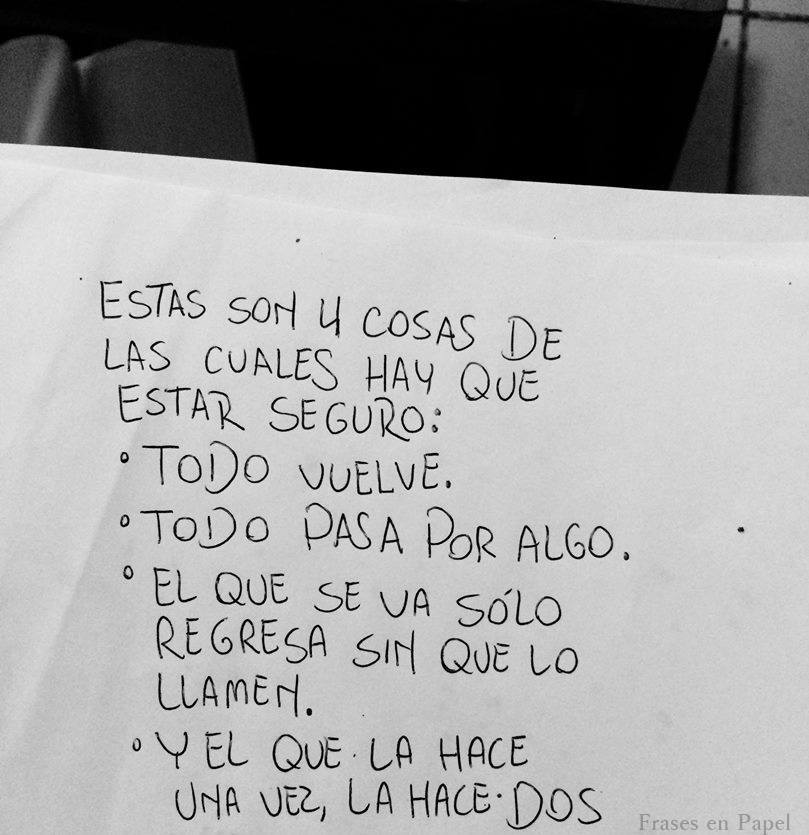 ESTAS SON 4 COSAS DE
LAS CUALES HAY QUE
ESTAR SEGURO:
° TODO VUELVE.
° TODO PASA POR ALGO.
° EL QUE SE VA SÓLO
REGRESA SIN QUE LO
LLAMEN.
° Y EL QUE LA HACE
UNA VEZ, LA HACE DOS
Frases en Papel